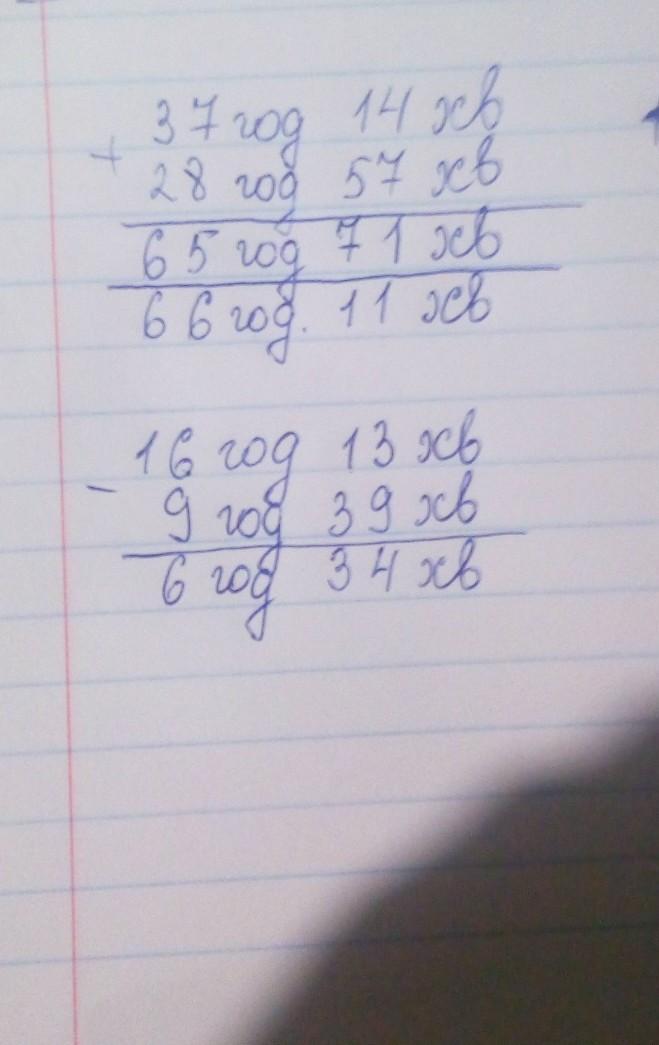 37 год 14 хв
+
28 год 57 хв
65 год 71 хв
66 год. 11 хв
16 год 13 хв
-
9 год 39 хв
6 год 34 хв